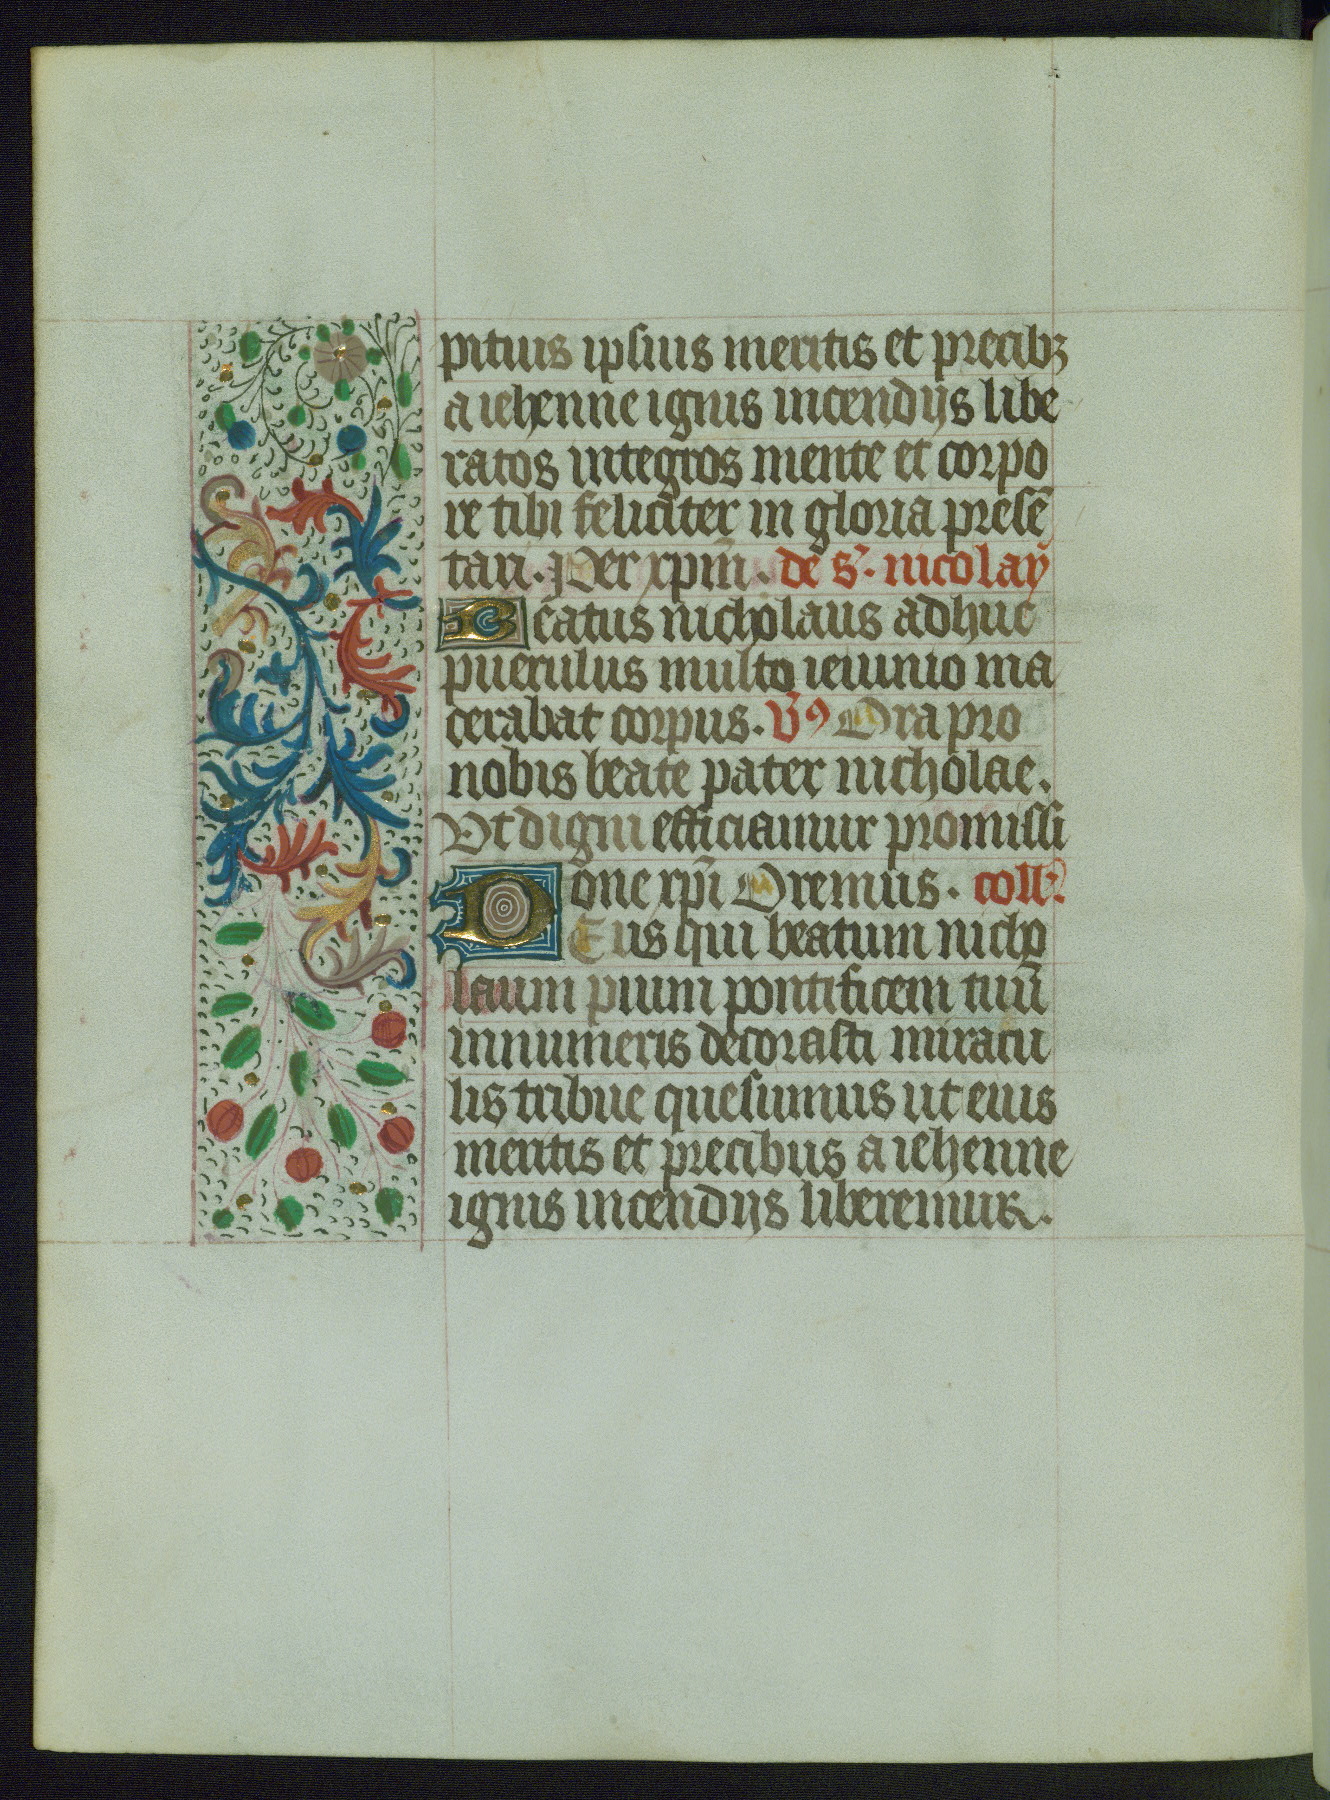 pitiuis ipsius meritis et precibꝫ
a iehenne ignis incendijs libe
ratos integros mente et corpo
re tibi feliciter in gloria presē
tari. Per xp̄m. de s. nicolay
Beatus nicholaus adhuc
puerulus multo ieiunio ma
cerabat corpus. Vꝰ Ora pro
nobis beate pater nicholae.
Vt digni efficiamur promissi
one xp̄i Oremus. coll.
DEus qui beatum nicho
laum pium pontificem tuū
innumeris decorasti miracu
lis tribue quesumus ut eius
meritis et precibus a iehenne
ignis incendijs liberemur.